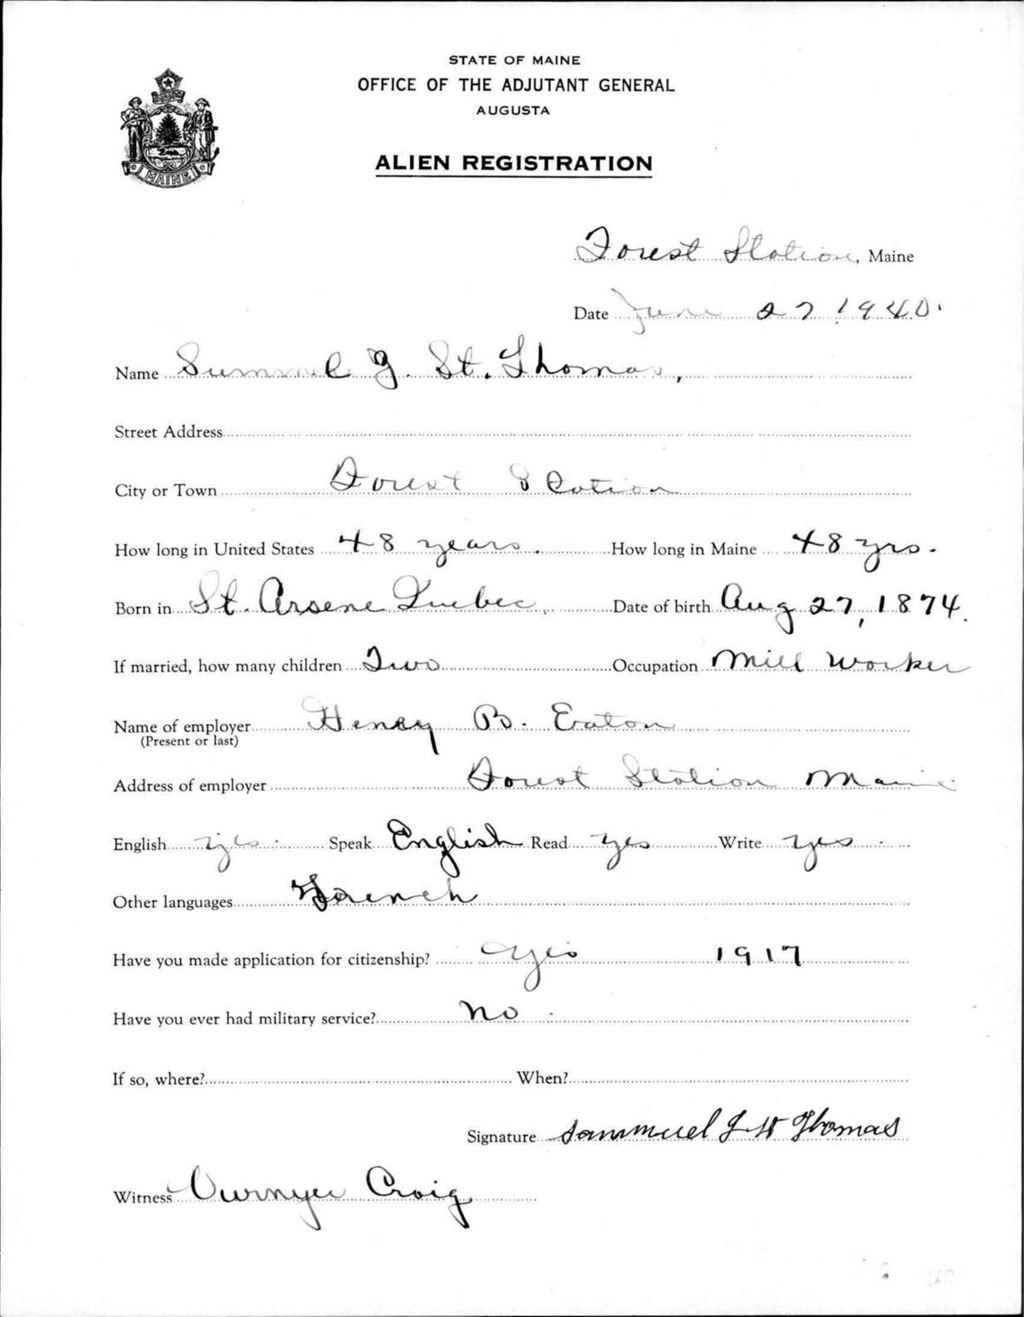 STATE OF MAINE
OFFICE OF THE ADJUTANT GENERAL
AUGUSTA
MAINE
ALIEN REGISTRATION
Forest Station, Maine
Date June 27 1940.
Name Summuel J. St. Thomas,
Street Address
City or Town Forest Station
How long in United States 48 years. How long in Maine 48 yrs.
Born in St. Arsene Quebec, Date of birth Aug 27, 1874.
If married, how many children Two Occupation Mill Worker
Name of employer Henry B. Eaton
(Present or last)
Address of employer Forest Station Maine
English yes. Speak English Read yes Write yes.
Other languages French
Have you made application for citizenship? yes 1917
Have you ever had military service? No
If so, where? When?
Signature Sammuel J St Thomas
Witness Craig